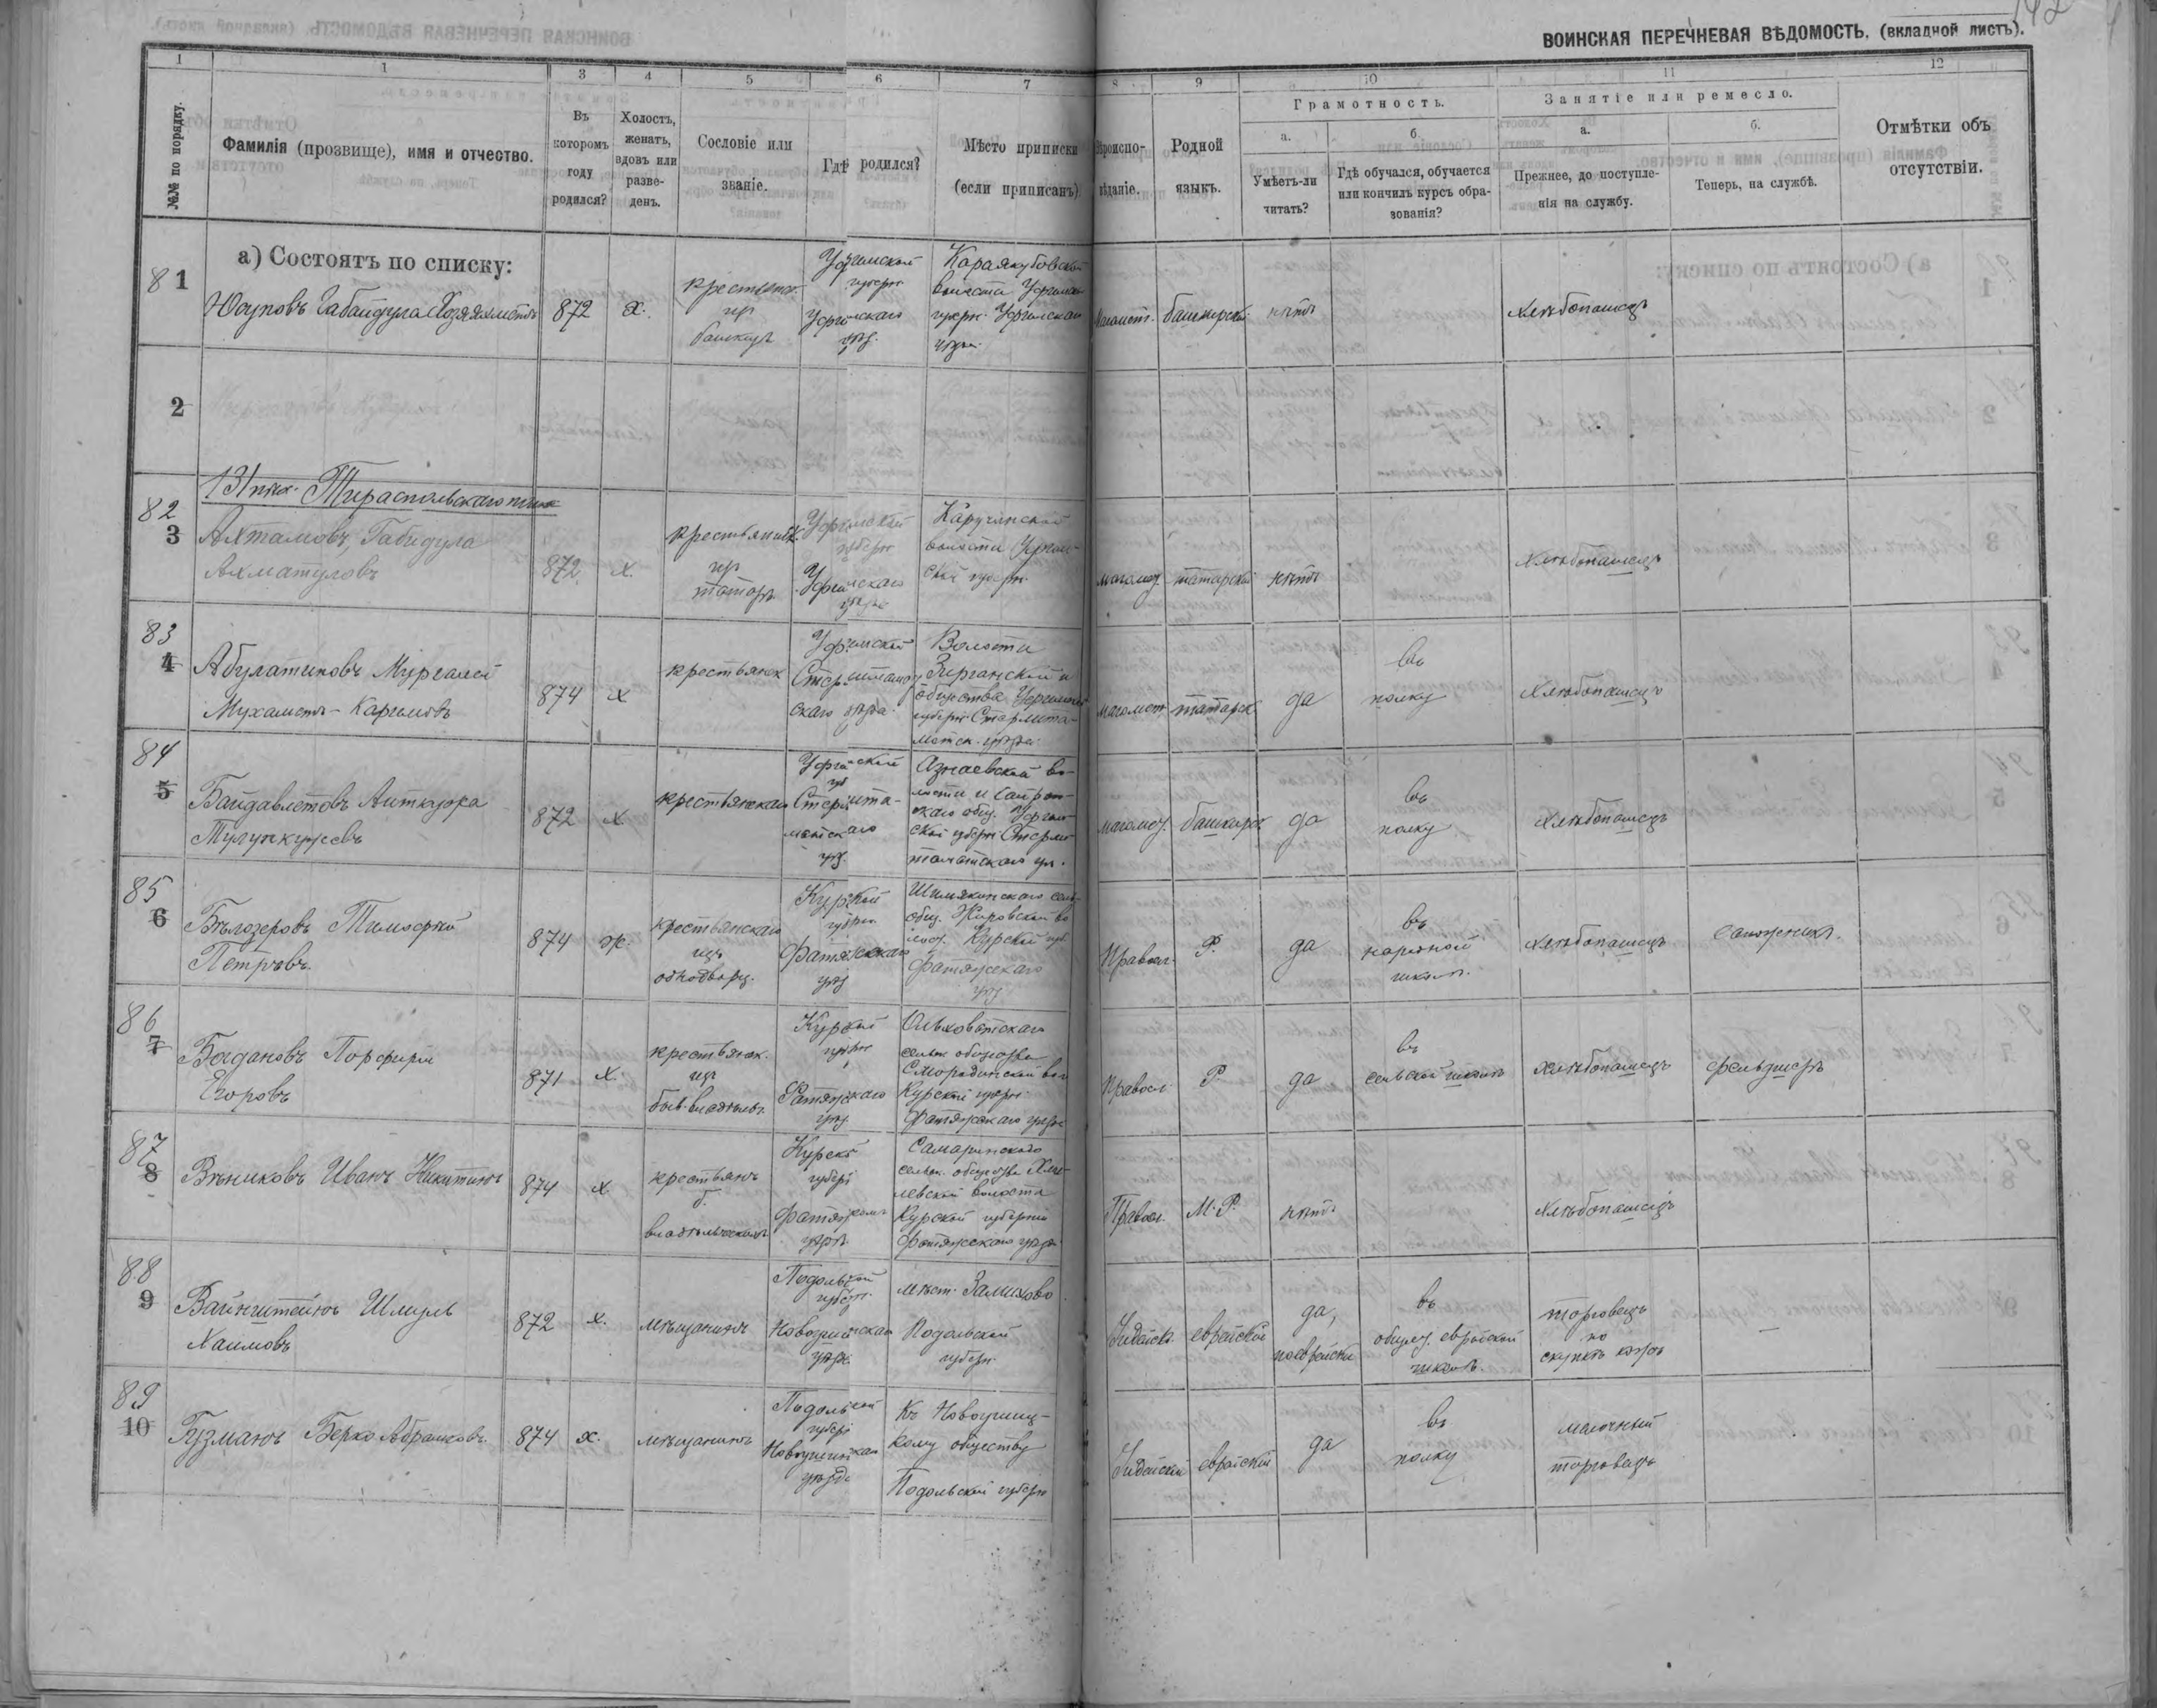 142
ВОИНСКАЯ ПЕРЕЧНЕВАЯ ВѢДОМОСТЬ. (вкладной листъ).
1 1 3 4 5 6 7 8 9 10 11 12
№№ по порядку.
Фамилія (прозвище), имя и отчество.
Въ которомъ году родился?
Холостъ, женатъ, вдовъ или разве-денъ.
Сословіе или званіе.
Гдѣ родился?
Мѣсто приписки (если приписанъ)
Вѣроиспо-вѣданіе.
Родной языкъ.
Грамотность.
а. Умѣетъ-ли читать?
б. Гдѣ обучался, обучается или кончилъ курсъ обра-зованія?
Занятіе или ремесло.
а. Прежнее, до поступле-нія на службу.
б. Теперь, на службѣ.
Отмѣтки объ отсутствіи.
а) Состоятъ по списку:
81 Юсуповъ Габайдула 872 х. крестьян. из башкир Уфимской губерн Уфимскаго уѣзд. Караякубовской волости Уфимской губерн. Уфимскаго уѣзда магомет. башкирскій нѣтъ хлѣбопашецъ
2
131 пѣх. Тираспольскаго полка
82 3 Ахтамовъ, Габидула Ахматуловъ 872 х. крестьянинъ из татаръ Уфимской губерн Уфимскаго уѣзда волости Уфим-ской губерн. магомед. татарскій нѣтъ Хлѣбопашецъ
83 4 Мухамет-Каримовъ 874 х крестьянск Уфимской Стерлитамак скаго уѣзда Волости Зирганской и общества Уфимской губерн Стерлита-матск. уѣзда магомет татарск да въ полку Хлѣбопашецъ
84 5 Байдавлетовъ 872 х. крестьянская Уфимской губ Стерлита-матскаго уѣз. Азнаевской во-лости и скаго общ. Уфим-ской губерн Стерли-таматскаго уѣ. магомед. башкирск да въ полку хлѣбопашецъ
85 6 Бѣлозеровъ Тимофей Петровъ. 874 ж. крестьянскаго изъ однодворц. Курской губерн. Фатежскаго уѣзд сель-общ. Жировской во лос. Курской губ. Фатежскаго уѣзд Правосл. Р. да въ народной школѣ. хлѣбопашецъ сапожникъ.
86 7 Богдановъ Порфирій Егоровъ 871 х. крестьянск. изъ быв. владѣльч. Курской губерн Фатежскаго уѣзд. Ольховатскаго сельск общества Смородинской вол Курской губерн. Фатежскаго уѣзда Правосл Р. да въ сельской школѣ хлѣбопашецъ фельдшеръ
87 8 Вѣниковъ Иванъ Никитинъ 874 х крестьянъ б. владѣльческихъ Курской губерн Фатежскомъ уѣздѣ Самаринскаго сельск. общества Хме-левской волости Курской губерніи Фатежскаго уѣзда Правосл. М. Р. нѣтъ Хлѣбопашецъ
88 9 Вайнштейнъ Шмуль Хаимовъ 872 х. мѣщанинъ Подольской губерн. Новоушицкаго уѣзд. мѣст. Замихово Подольской губерн. Іудейск. еврейскій да, поеврейски въ общес. еврейской школѣ. торговецъ по скупкѣ кожъ —
89 10 Гузманъ Берко Абрамовъ. 874 х. мѣщанинъ Подольской губерн Новоушицкаго уѣзда Къ Новоушиц-кому обществу Подольской губерн Іудейскій еврейскій да въ полку мелочный торговецъ